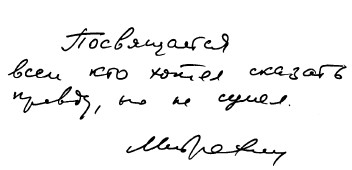 Посвящается
всем кто хотел сказать
правду, но не сумел.